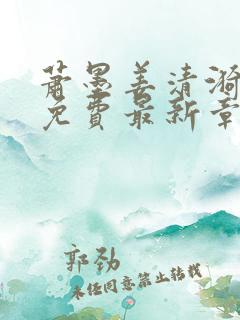 萧墨姜清漪
免费最新章
郭劲
未经同意禁止转载